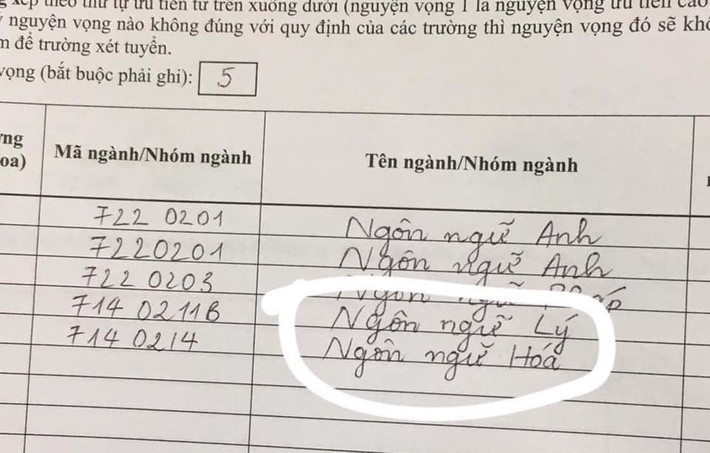 xếp theo thứ tự ưu tiên từ trên xuống dưới (nguyện vọng 1 là nguyện vọng ưu tiên cao
nguyện vọng nào không đúng với quy định của các trường thì nguyện vọng đó sẽ khô
để trường xét tuyển.
vọng (bắt buộc phải ghi): 5
oa) Mã ngành/Nhóm ngành Tên ngành/Nhóm ngành
722 0201 Ngôn ngữ Anh
7220201 Ngôn ngữ Anh
722 0203 Ngôn ngữ
714 0211B Ngôn ngữ Lý
714 0214 Ngôn ngữ Hóa